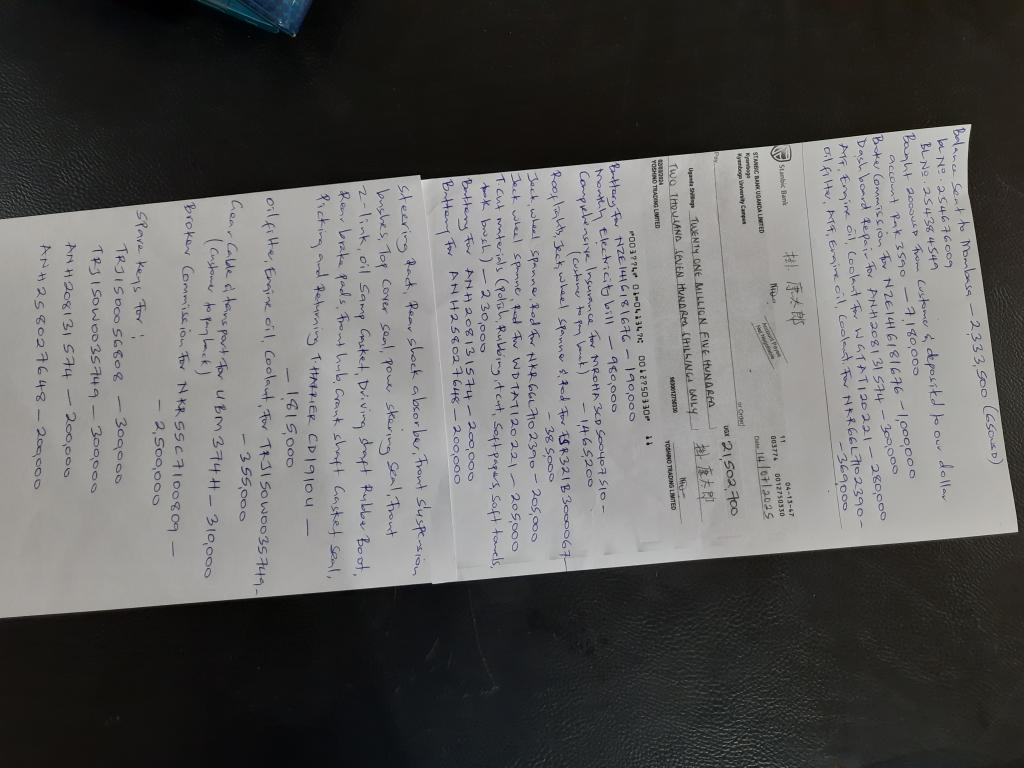 Balance sent to Mombasa – 2,333,500 (650USD)
BL NO: 25467609
BL NO: 25438549
Bought 2000USD from Customer & deposited to our dollar
account Rate 3590 – 7,180,000
Broker Commission for NZE1416181676 – 1,000,000
Dash board Repair for ANH208131574 – 300,000
ATF, Engine oil, Coolant for WGAT120221 – 280,000
oil filter, ATF, Engine oil, Coolant for NKR66L7102390 –
– 369,000
Stanbic Bank
STANBIC BANK UGANDA LIMITED
Kyambogo
Kyambogo University Campus
11 04-13-47
003774 0012750330
Date 14/07/2025
Pay
or Order
Uganda Shillings TWENTY ONE MILLION FIVE HUNDRED
UGX 21,502,700
TWO THOUSAND SEVEN HUNDRED SHILLINGS ONLY
02/08/2024
YOSHINO TRADING LIMITED
YOSHINO TRADING LIMITED
Battery for NZE1416181676 – 190,000
Monthly Electricity bill – 980,000
Comprehensive Insurance for MROHA3CD500407510 –
(Customer to pay back) – 1,465,200
Jack, wheel spanner & Rod for
– 385,000
Jack, wheel spanner, Rod for NKR66L7102390 – 205,000
Jack, wheel spanner, Rod for 120221 – 205,000
Ticat materials (Polish, Rubbing, tcut, Soft papers, Soft towels,
– 230,000
Battery for ANH208131574 – 200,000
Battery for ANH258027648 – 200,000
Steering Rack, Rear shock absorber, Front suspension
bushes, Top cover seal, power steering seal, Front
Z-link, oil Samp Gasket, Driving shaft Rubber Boot,
Rear brake pads, Front hub, Crant shaft Gasket seal,
Picking and Returning T.HARRIER CD191OU –
– 1,815,000
oil filter, Engine oil, Coolant, for TRJ150W0035749 –
– 355,000
Gear Cable & transport for UBM 374H – 310,000
(Customer to pay back)
Broker Commission for NKR55C7100809 –
– 2,500,000
Spare keys for:
TRJ1500056808 – 300,000
TRJ150W0035749 – 300,000
ANH208131574 – 200,000
ANH258027648 – 200,000